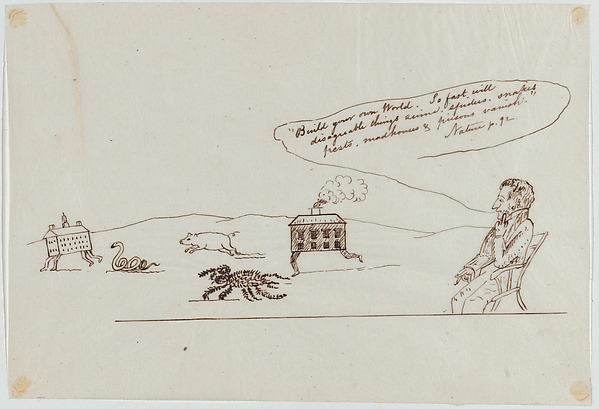 "Build your own World. So fast will
disagreeable things swine, spiders, snakes
pests, madhouses & prisons vanish."
Nature p. 92